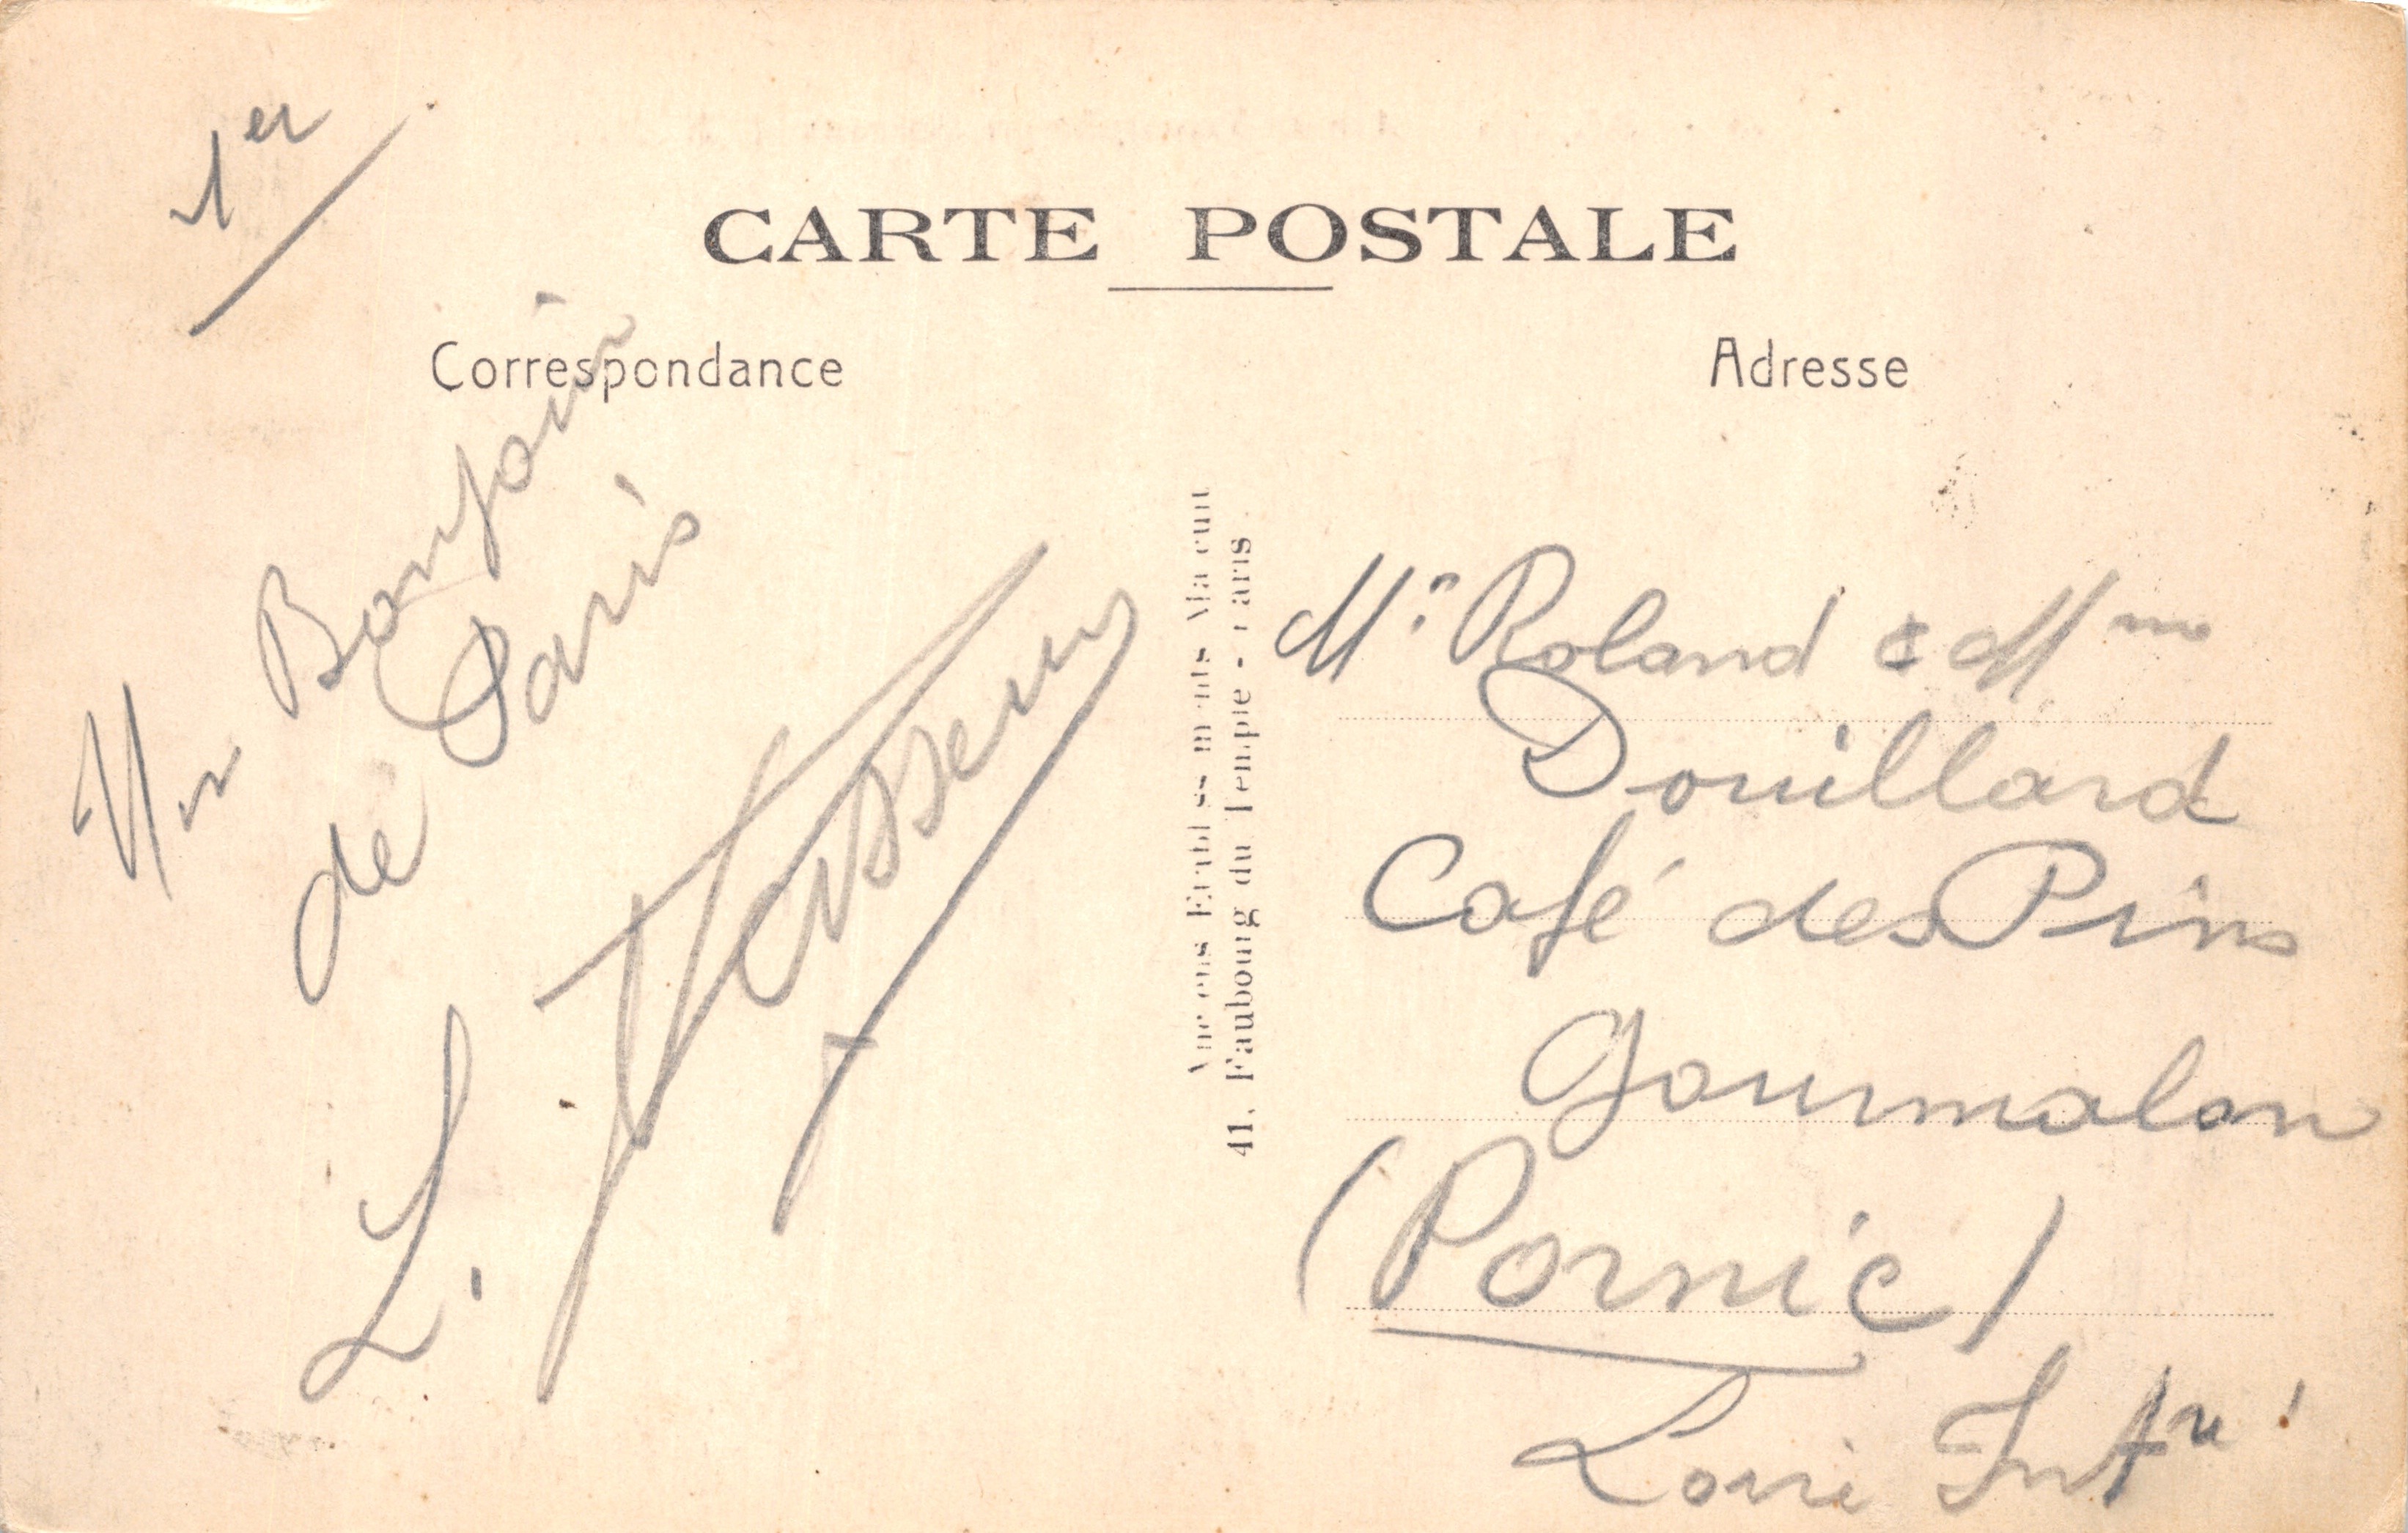 1er
CARTE POSTALE
Correspondance
Adresse
Un Bonjour
de Paris
L.
Anciens Etablissements Malcuit
41, Faubourg du Temple - Paris
Mr Roland & Mme
Douillard
Café des Pins
Gourmalon
(Pornic)
Loire Infre